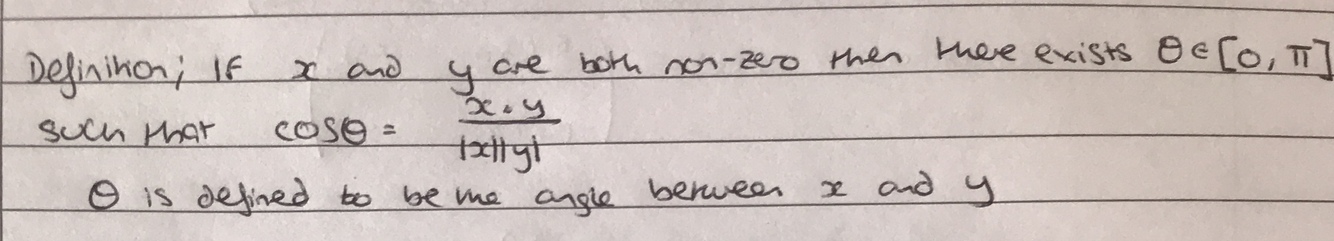 Definition; If x and y are both non-zero then there exists θ ∈ [0, π]
such that cosθ = x·y / |x||y|
θ is defined to be the angle between x and y